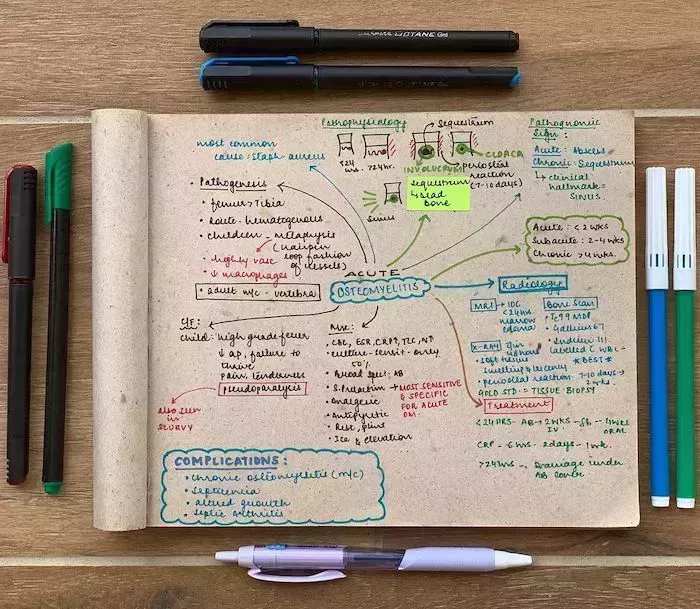 UOTANE
Pathophysiology
Sequestrum
CLOACA
<24
hrs.
>24hr.
INVOLUCRUM
periosteal
reaction
(7-10 days)
Sequestrum
↳ Dead
bone
Sinus
Pathognomic
Sign :
Acute : Abscess
Chronic : Sequestrum
↳ clinical
hallmark =
SINUS.
most common
cause : staph-aureus
• Pathogenesis
• femur > Tibia
• Route - hematogenous
• children - metaphysis
(hairpin
loop fashion
of vessels)
• highly vasc
• ↓ macrophages
• adult m/c - vertebra
Acute : < 2 wks
Subacute : 2-4 wks
Chronic > 4 wks.
ACUTE
OSTEOMYELITIS
Radiology
MRI → IOC
<24hrs
marrow
edema
Bone Scan
• Tc99 MDP
• Gallium 67
• Indium 111
labeled WBC -
* BEST *
X-RAY
48 hours
• soft tissue
swelling & lucency
• periosteal reaction - 7-10 days →
2 wks.
GOLD STD - TISSUE BIOPSY
C/F:
child: high grade fever
↓ ap, failure to
thrive
pain, tenderness
pseudoparalysis
also seen
in
SCURVY
• CBC, ESR, CRP↑, TLC, N↑
• culture - sensit - only
50%
• Broad spec: AB
• S.Procalcitonin → MOST SENSITIVE
& SPECIFIC
FOR ACUTE
OM.
• Analgesic
• Antipyretic
• Rest, splint
• Ice & elevation
Treatment
<24HRS - AB → 2 WKS - fb - 4 WKS
IV ORAL
CRP - 6 hrs - 2 days - 1 wk.
>24 hrs - Drainage under
AB cover
COMPLICATIONS :
• chronic osteomyelitis (m/c)
• Septicemia
• altered growth
• Septic Arthritis